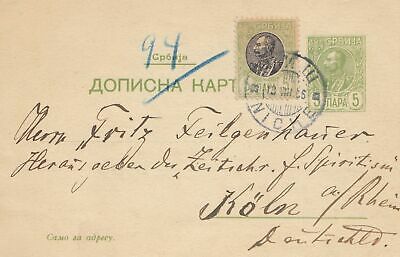 94
Србија
СРБИЈА
СРБИЈА
ДОПИСНА КАРТ
5 ПАРА 5
НИШ
Herrn Fritz Feilgenhauer
Herausgeber der „Zeitschr. f. Spiritism
Köln a/Rhein
Deutschld.
Само за адресу.